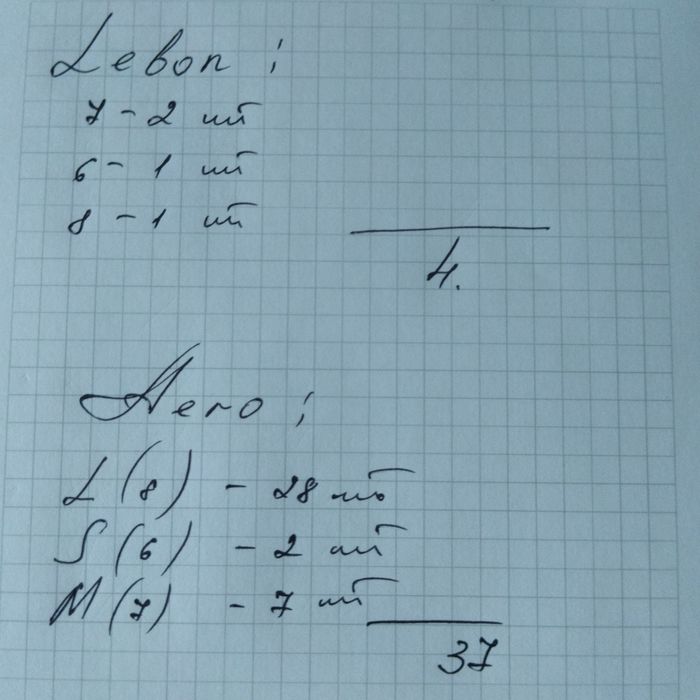 Lebon:
7 - 2 шт
6 - 1 шт
8 - 1 шт
4.
Aero:
L (8) - 28 шт
S (6) - 2 шт
M (7) - 7 шт
37